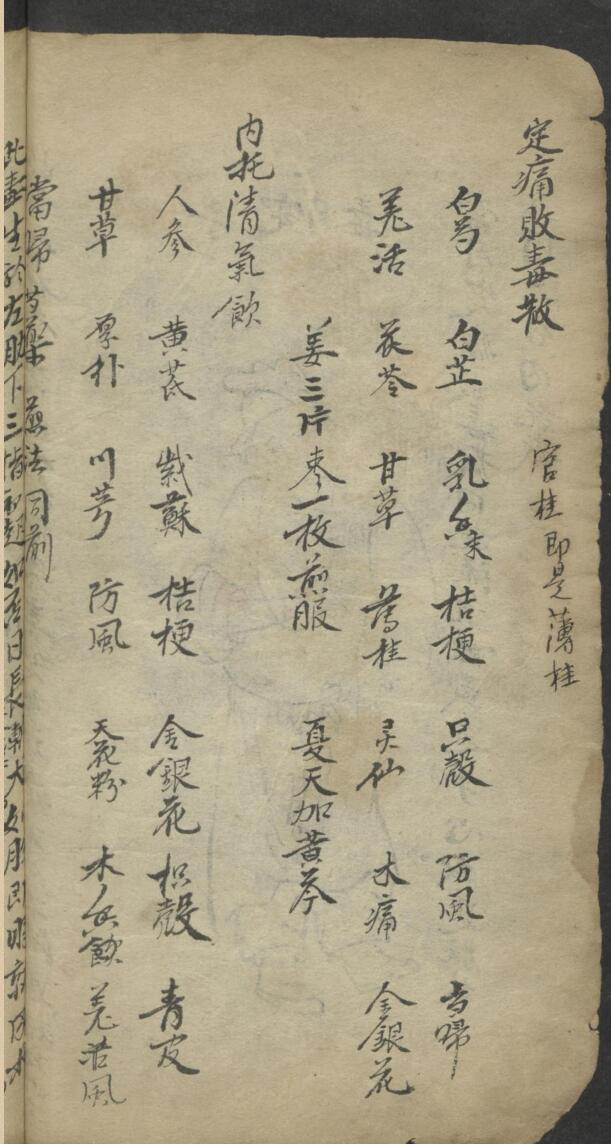 定痛敗毒散 官桂即是薄桂
白芍 白芷 乳香末 桔梗 只殼 防風 当歸
羌活 茯苓 甘草 薄桂 灵仙 木痛 金銀花
姜三片枣一枚煎服 夏天加黄芩
内托清氣飲
人參 黄芪 紫蘇 桔梗 金銀花 枳殼 青皮
甘草 厚朴 川芎 防風 天花粉 木香飲 羌活風
當歸 芍藥 煎法同前
此毒生於左 下三指 起如 日長 大如